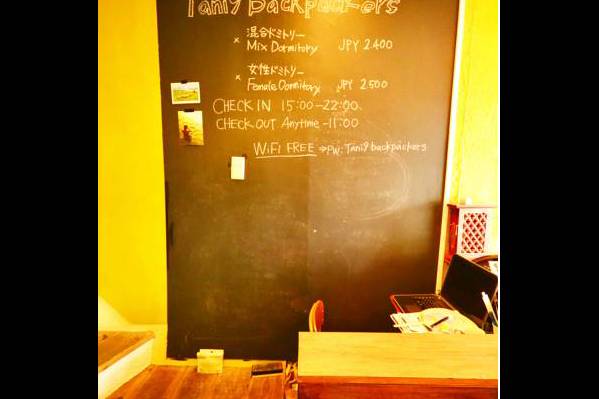 Tani9 backpackers
× 混合ドミトリー
Mix Dormitory JPY 2.400
× 女性ドミトリー
Female Dormitory JPY 2.500
CHECK IN 15:00-22:00
CHECK OUT Anytime -11:00
WiFi FREE ⇒ PW: Tani9backpackers